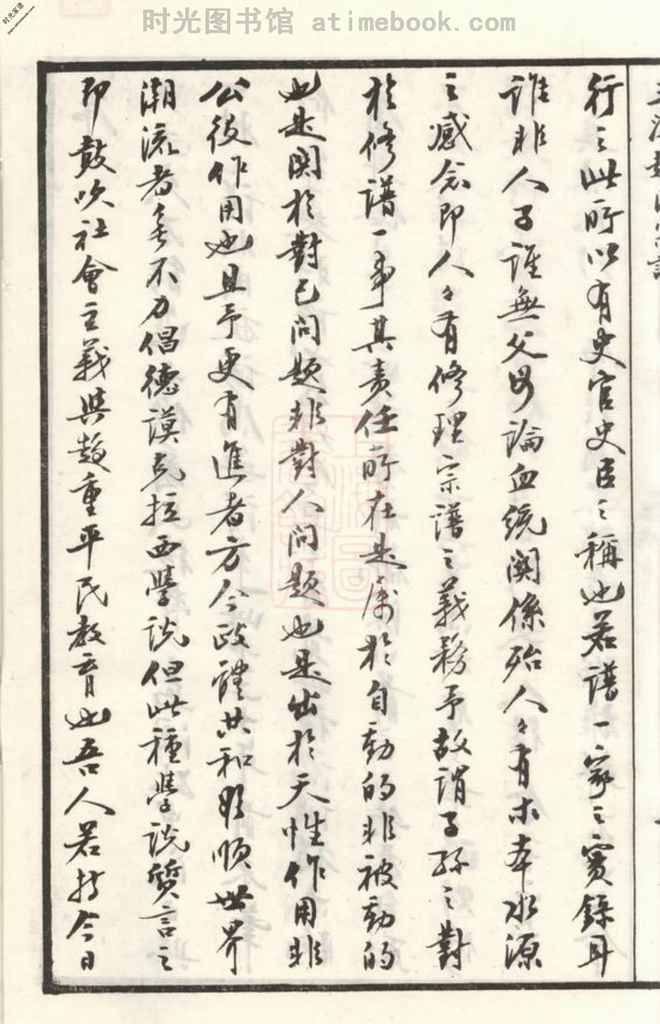 时光图书馆 atimebook.com
时光家谱
行之此所以有史官史臣之稱也若譜一家之實錄耳
誰非人子誰無父母論血統関係殆人々有木本水源
之感念即人々有修理宗譜之義務予故謂子孫之對
於修譜一事其责任所在是属於自動的非被動的
也是関於對己问题非對人问题也是出於天性作用非
公役作用也且予更有進者方今政體共和好順世界
潮流者多不力倡德謨克拉西學说但此種學说質言之
即鼓吹社會主義與趨重平民教育也吾人若持今日